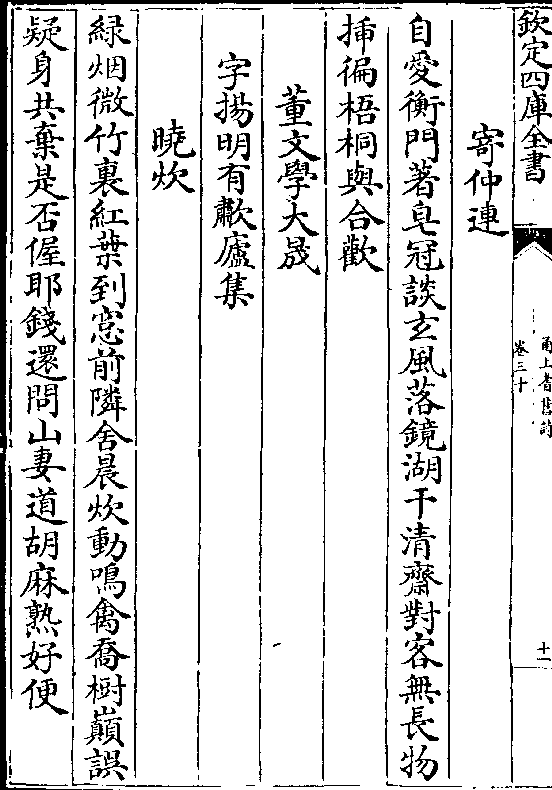 欽定四庫全書
甬上耆舊詩
卷三十
十一
寄仲連
自愛衡門著皂冠談玄風落鏡湖干清齋對客無長物
揷徧梧桐與合歡
董文學大晟
字揚明有歗廬集
曉炊
緑烟微竹裏紅葉到窓前隣舍晨炊動鳴禽喬樹巔誤
疑身共棄是否偓耶錢還問山妻道胡麻熟好便